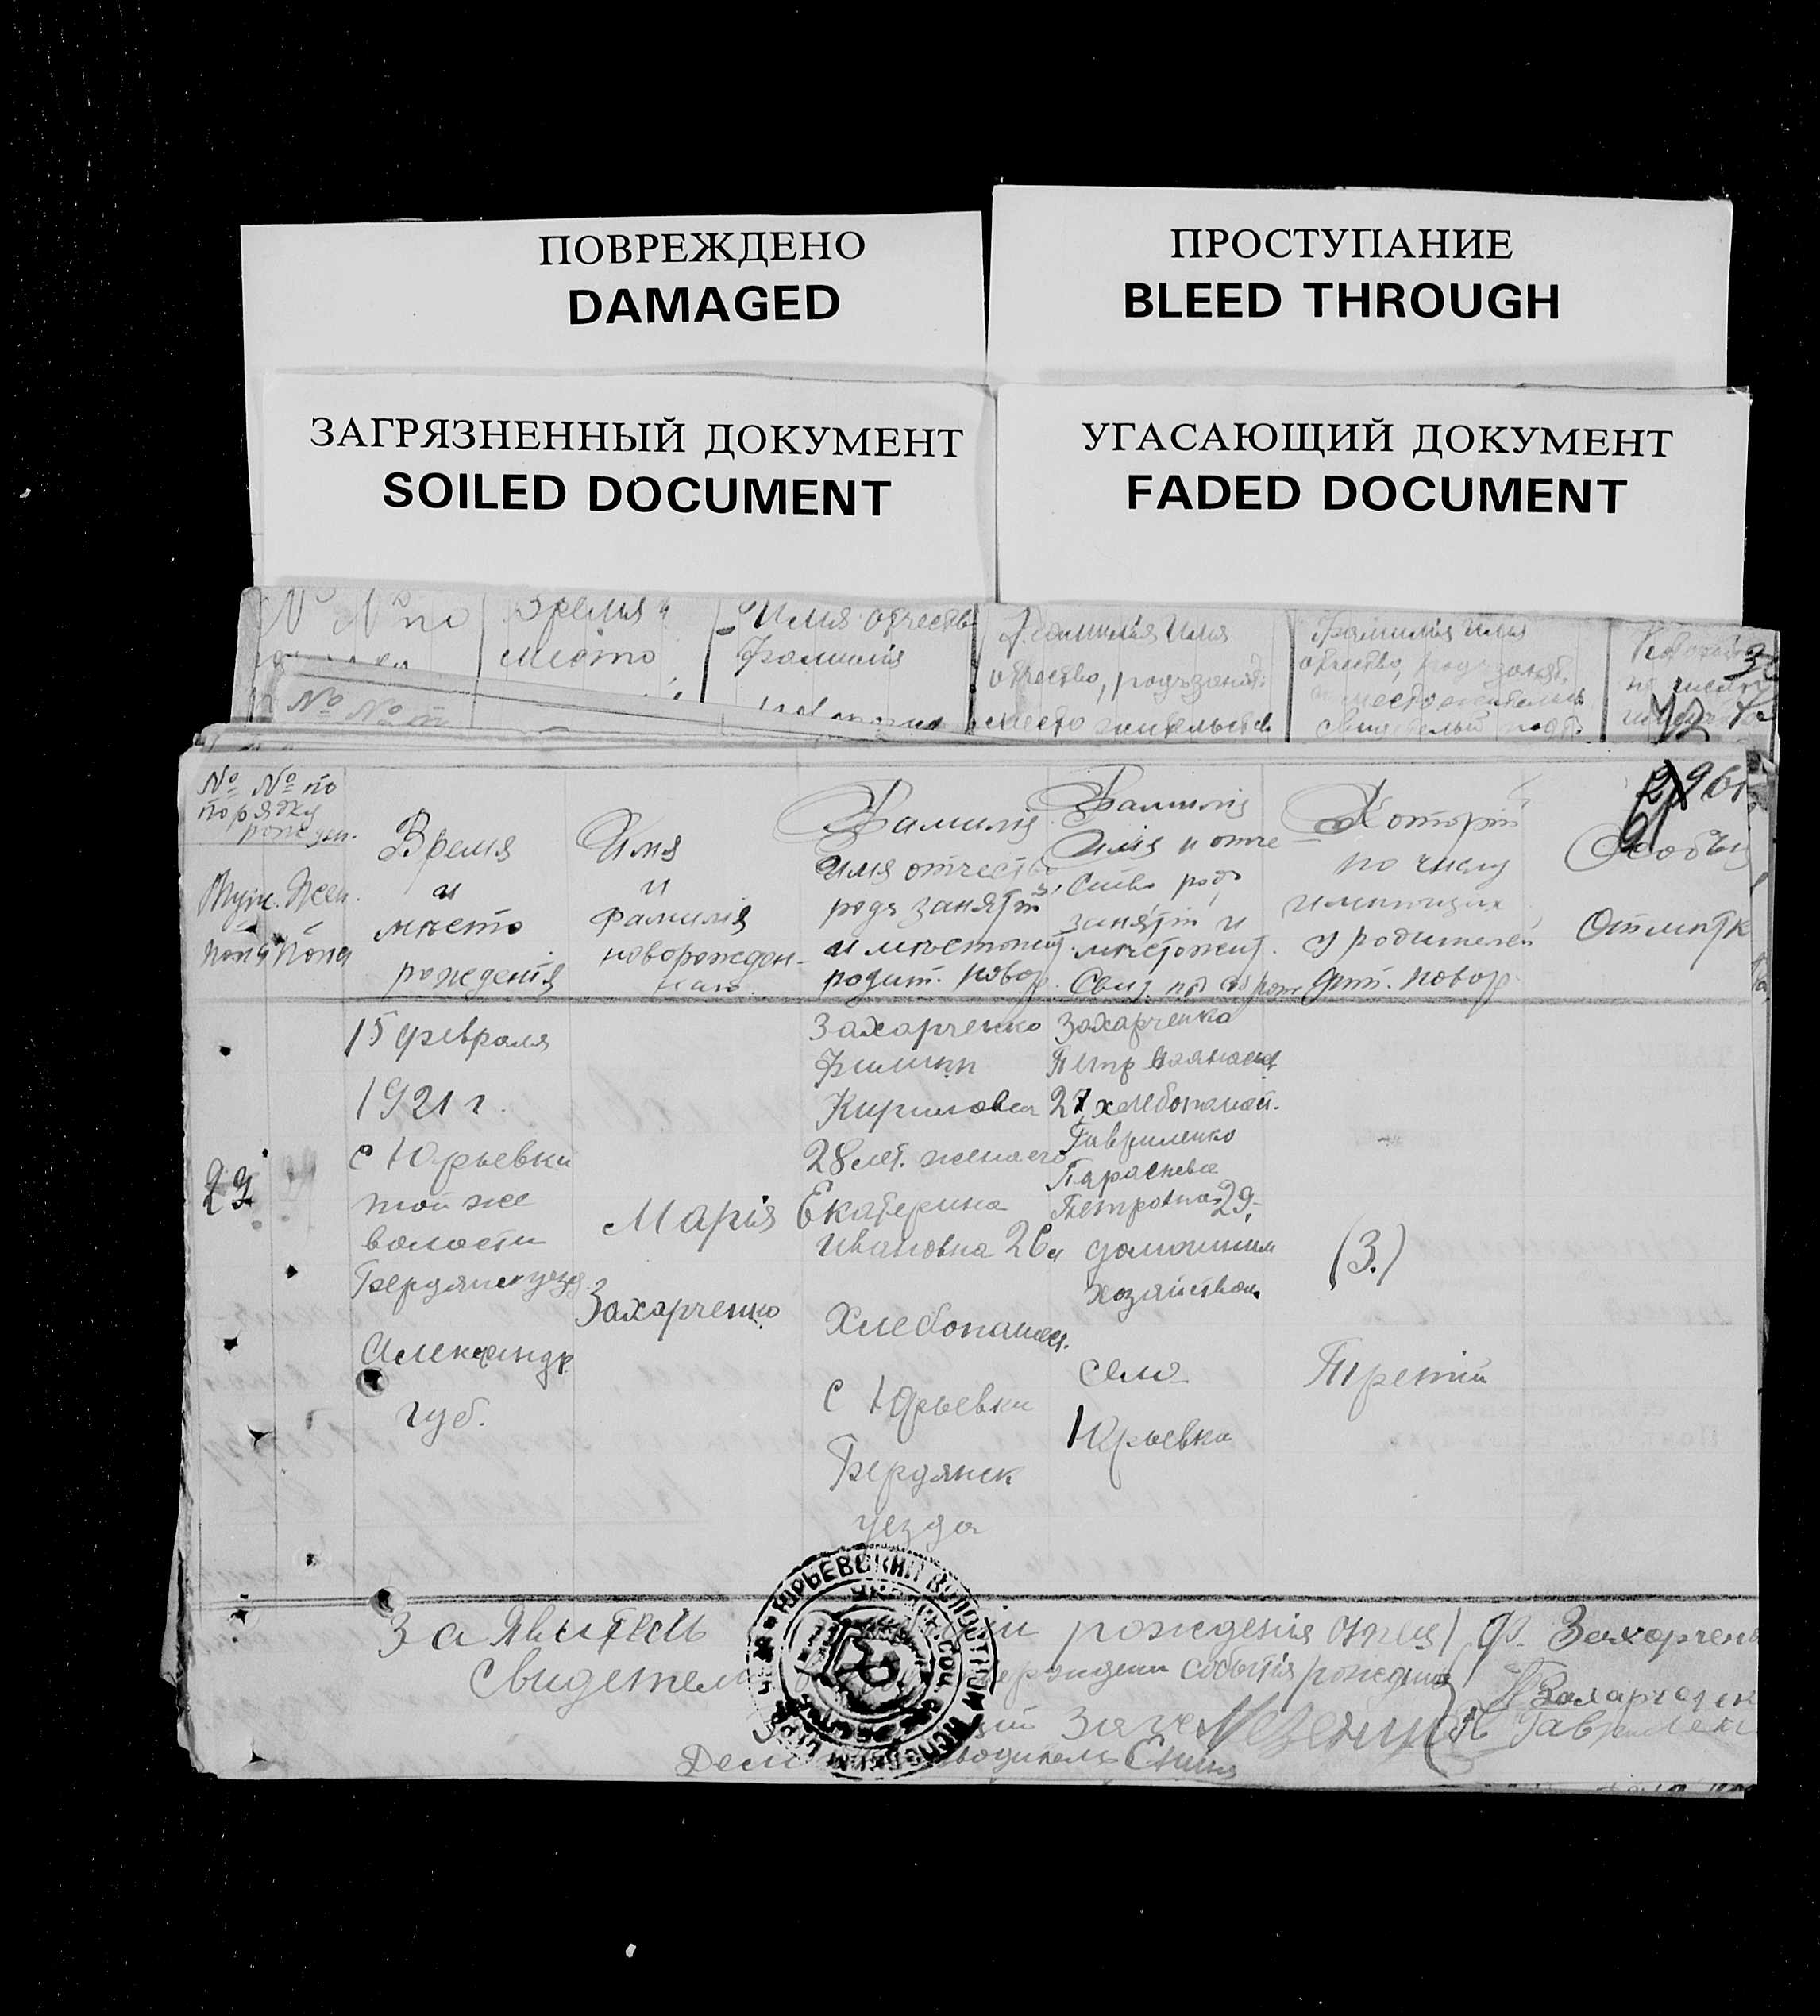 ПОВРЕЖДЕНО
DAMAGED
ПРОСТУПАНИЕ
BLEED THROUGH
ЗАГРЯЗНЕННЫЙ ДОКУМЕНТ
SOILED DOCUMENT
УГАСАЮЩИЙ ДОКУМЕНТ
FADED DOCUMENT
№ № по
Время и
место
Имя отчество
Фамилія
Фамилія Имя
отчество, родъ занят.
место жительств
Фамилія Имя
отчество, родъ занят.
место житель
№ №
№ № по
порядку
рожден.
Муж. Жен.
пола пола
Время
и
мѣсто
рожденія
Имя
и
фамилія
новорожден-
наго
Фамилія
имя отчество
родъ занятій
и мѣстожит.
родит. новор.
Фамилія
имя и отче
ство родъ
занятій и
мѣстожит.
Который
по числу
имеющихся
у родителей
дит. новор.
61
Особыя
Отмѣтк
15 февраля
1921 г.
с Юрьевки
той же
волости
Бердянск уезд.
Александр.
губ.
Марія
Захарченко
Захарченко
Филипп
Кирилович
28 лет. жена его
Екатерина
Ивановна 26 л
Хлебопашец.
с Юрьевки
Бердянск
уезда
Захарченко
Петр
27 хлебопашец.
Гавриленко
Парасковья
Петровна 29.
домашним
хозяйством.
село
Юрьевка
(3.)
Третий
Заявитель рожденія отец Ф. Захарчен
Свидетел событія рожденія Захарченк
Гавриленк
ЮРЬЕВСКИЙ ВОЛОСТНОЙ ИСПОЛКОМ
Дело водитель